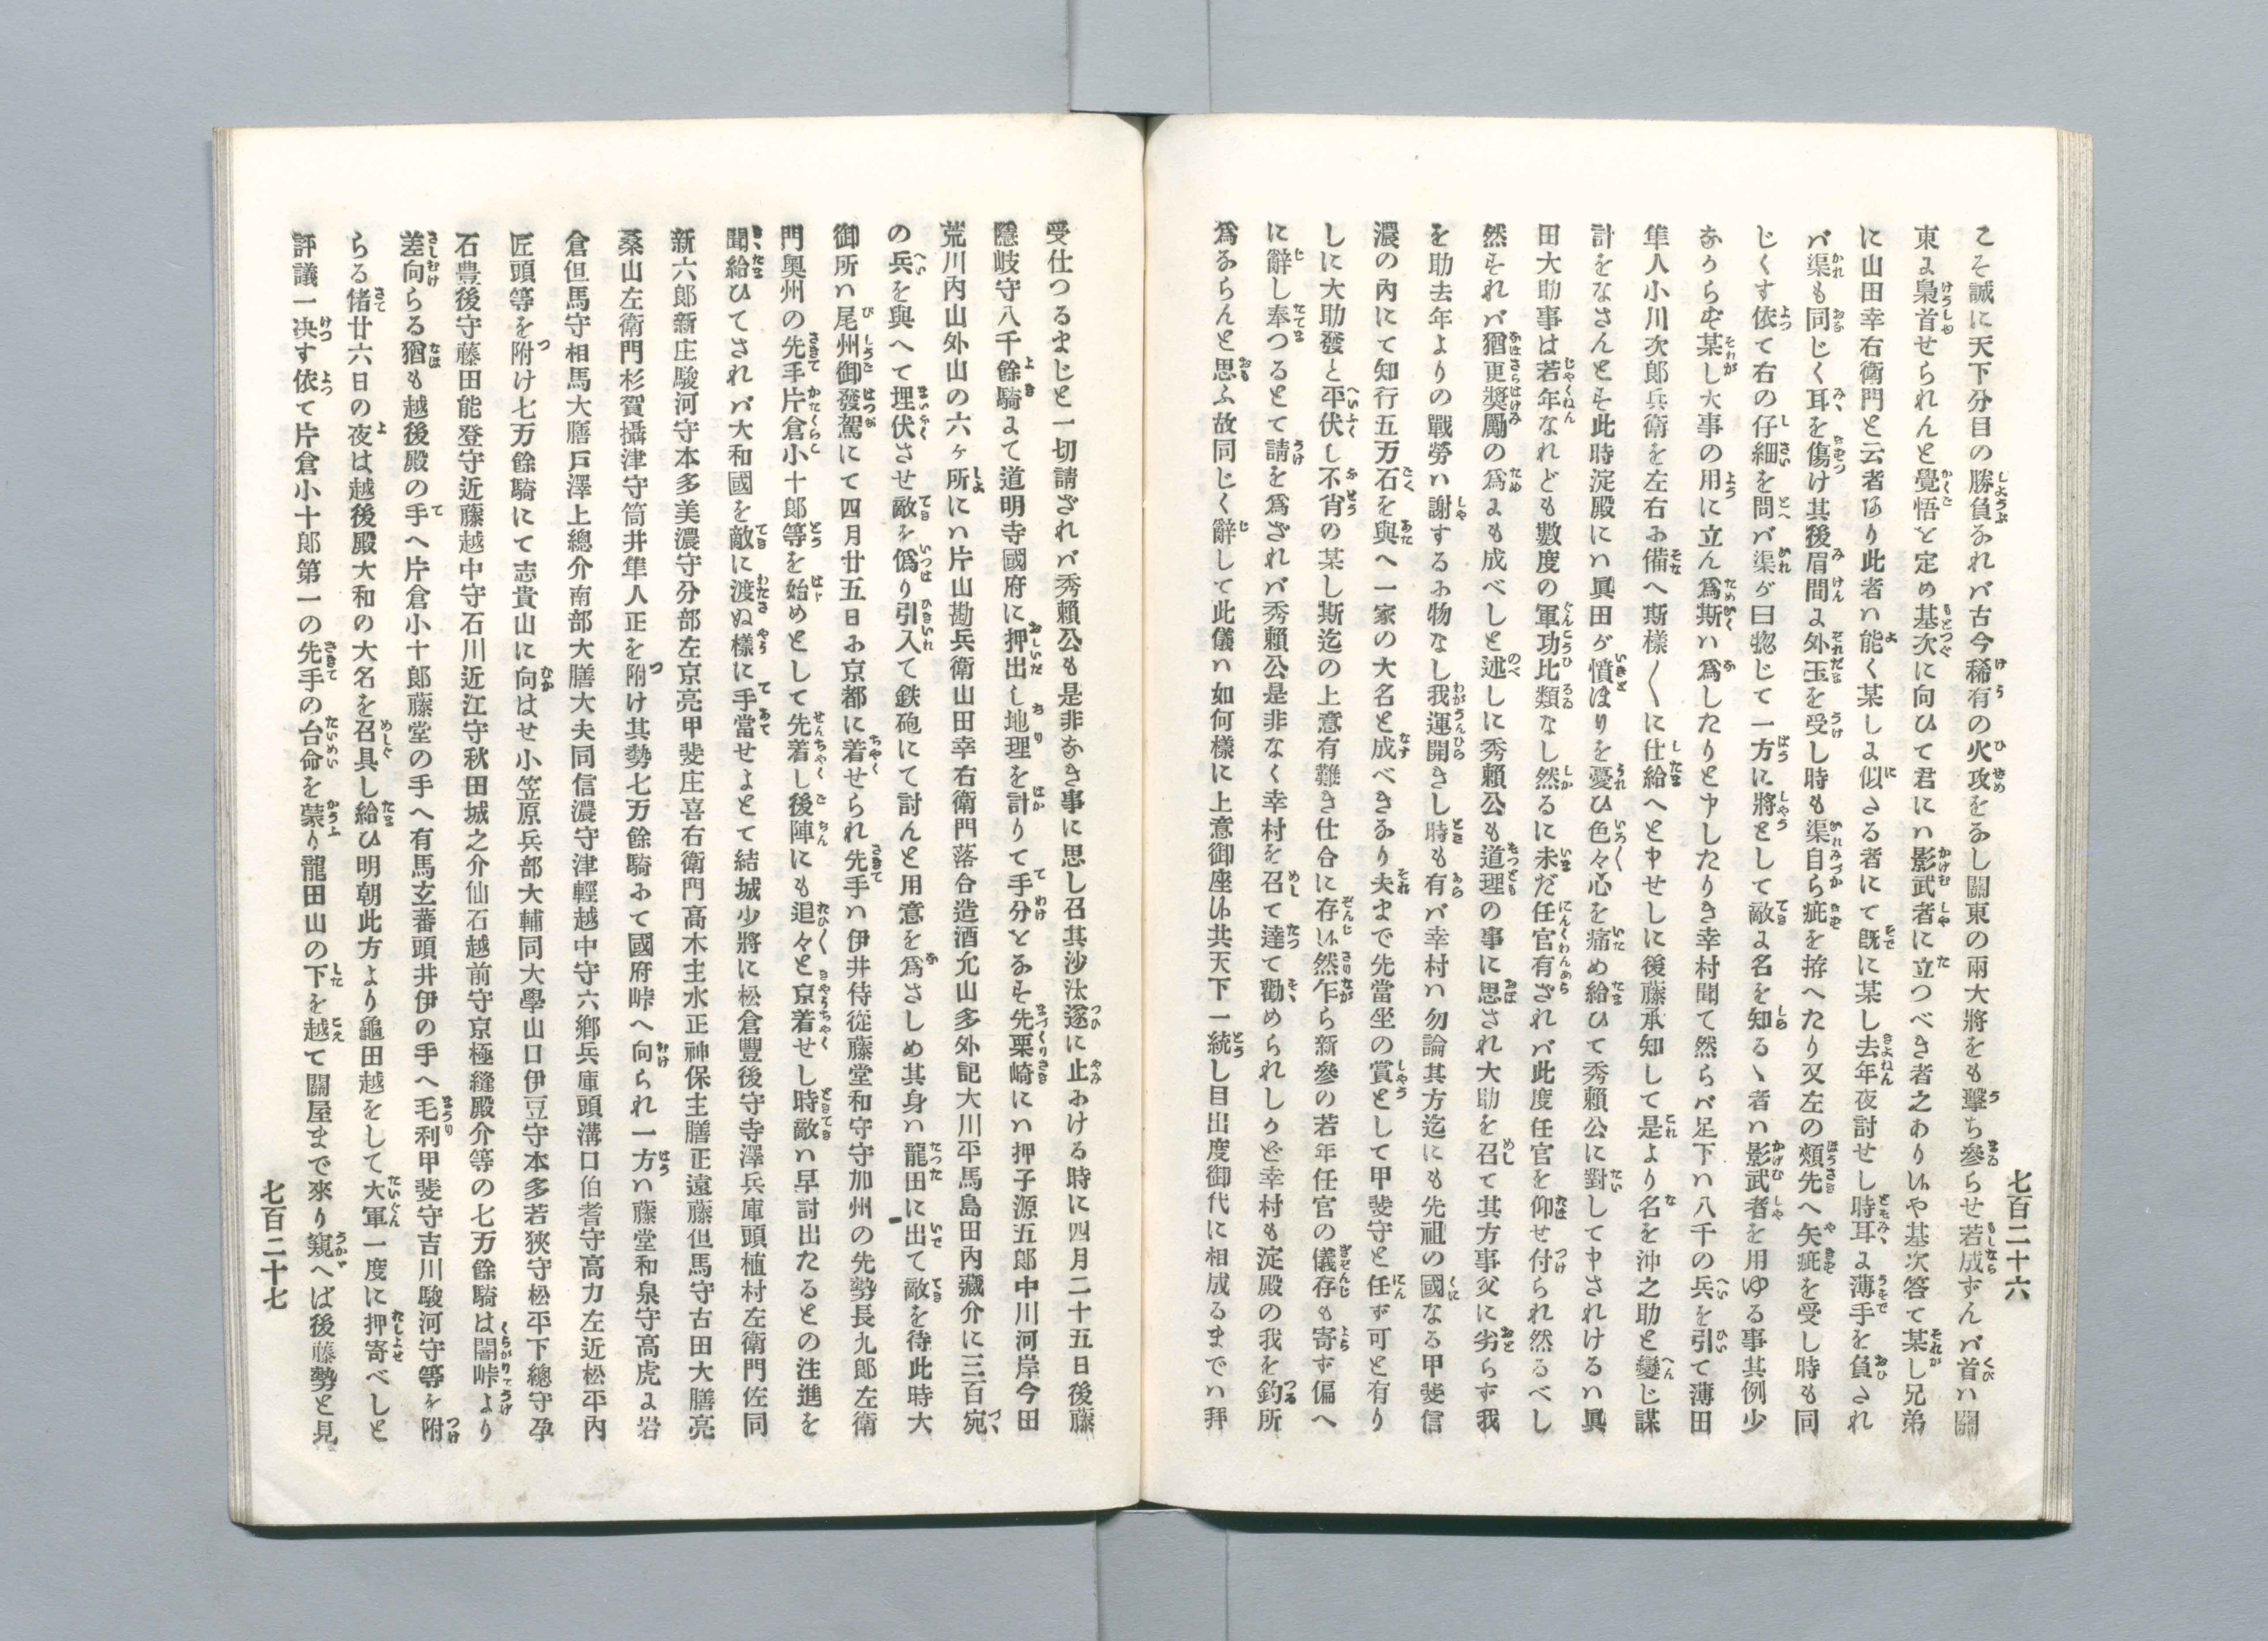 七百二十六
こそ誠に天下分目の勝負なれバ古今稀有の火攻をなし關東の兩大將をも擊ち參らせ若成ずんバ首ハ關
東に梟首せられんと覺悟を定め基次に向ひて君にハ影武者に立つべき者之ありしや基次答て某し兄弟
に山田幸右衛門と云者あり此者ハ能く某しに似さる者にて既に某し去年夜討せし時耳に薄手を負され
バ渠も同じく耳を傷け其後眉間に外玉を受し時も渠自ら疵を拵へたり又左の頰先へ矢疵を受し時も同
じくす依て右の仔細を問バ渠が曰惣じて一方に將として敵に名を知るゝ者ハ影武者を用ゆる事其例少
なからず某し大事の用に立ん爲斯ハ爲したりと申したりき幸村聞て然らバ足下ハ八千の兵を引て薄田
隼人小川次郎兵衛を左右に備へ斯樣〱に仕給へと申せしに後藤承知して是より名を沖之助と變じ謀
計をなさんとぞ此時淀殿にハ眞田が憤ほりを憂ひ色々心を痛め給ひて秀賴公に對して申されけるハ眞
田大助事は若年なれども數度の軍功比類なし然るに未だ任官有ざれバ此度任官を仰せ付られ然るべし
然それバ猶更奬勵の爲にも成べしと述しに秀賴公も道理の事に思され大助を召て其方事父に劣らず我
を助去年よりの戰勞ハ謝するに物なし我運開きし時も有バ幸村ハ勿論其方迄にも先祖の國なる甲斐信
濃の內にて知行五万石を與へ一家の大名と成べきなり夫まで先當坐の賞として甲斐守と任ず可と有り
しに大助發と平伏し不肖の某し斯迄の上意有難き仕合に存じ然乍ら新參の若年任官の儀存も寄ず偏へ
に辭し奉つるとて請を爲ざれバ秀賴公是非なく幸村を召て達て勸められしかど幸村も淀殿の我を釣所
爲ならんと思ふ故同じく辭して此儀ハ如何樣に上意御座候共天下一統し目出度御代に相成るまでハ拜
受仕つるまじと一切請ざれバ秀賴公も是非なき事に思し召其沙汰遂に止みける時に四月二十五日後藤
隱岐守八千餘騎にて道明寺國府に押出し地理を計りて手分となそ先栗崎にハ押子源五郎中川河岸今田
荒川內山外山の六ケ所にハ片山勘兵衛山田幸右衛門落合造酒允山多外記大川平馬島田內藏介に三百宛
の兵を與へて埋伏させ敵を僞り引入て鉄砲にて討んと用意を爲さしめ其身ハ龍田に出て敵を待此時大
御所ハ尾州御發駕にて四月廿五日に京都に着せられ先手ハ伊井侍從藤堂和守守加州の先勢長九郎左衛
門奧州の先手片倉小十郎等を始めとして先着し後陣にも追々と京着せし時敵ハ早討出たるとの注進を
聞給ひてされバ大和國を敵に渡ぬ樣に手當せよとて結城少將に松倉豐後守寺澤兵庫頭植村左衛門佐同
新六郎新庄駿河守本多美濃守分部左京亮甲斐庄喜右衛門高木主水正神保主膳正遠藤但馬守古田大膳亮
桑山左衛門杉賀攝津守筒井隼人正を附け其勢七万餘騎にて國府峠へ向られ一方ハ藤堂和泉守高虎に岩
倉但馬守相馬大膳戶澤上總介南部大膳大夫同信濃守津輕越中守六鄕兵庫頭溝口伯耆守高力左近松平內
匠頭等を附け七万餘騎にて志貴山に向はせ小笠原兵部大輔同大學山口伊豆守本多若狹守松平下總守孕
石豊後守藤田能登守近藤越中守石川近江守秋田城之介仙石越前守京極縫殿介等の七万餘騎は闇峠より
差向らる猶も越後殿の手へ片倉小十郎藤堂の手へ有馬玄蕃頭井伊の手へ毛利甲斐守吉川駿河守等を附
らる偖廿六日の夜は越後殿大和の大名を召具し給ひ明朝此方より龜田越をして大軍一度に押寄べしと
評議一决す依て片倉小十郎第一の先手の台命を蒙り龍田山の下を越て關屋まで來り窺へば後藤勢と見
七百二十七